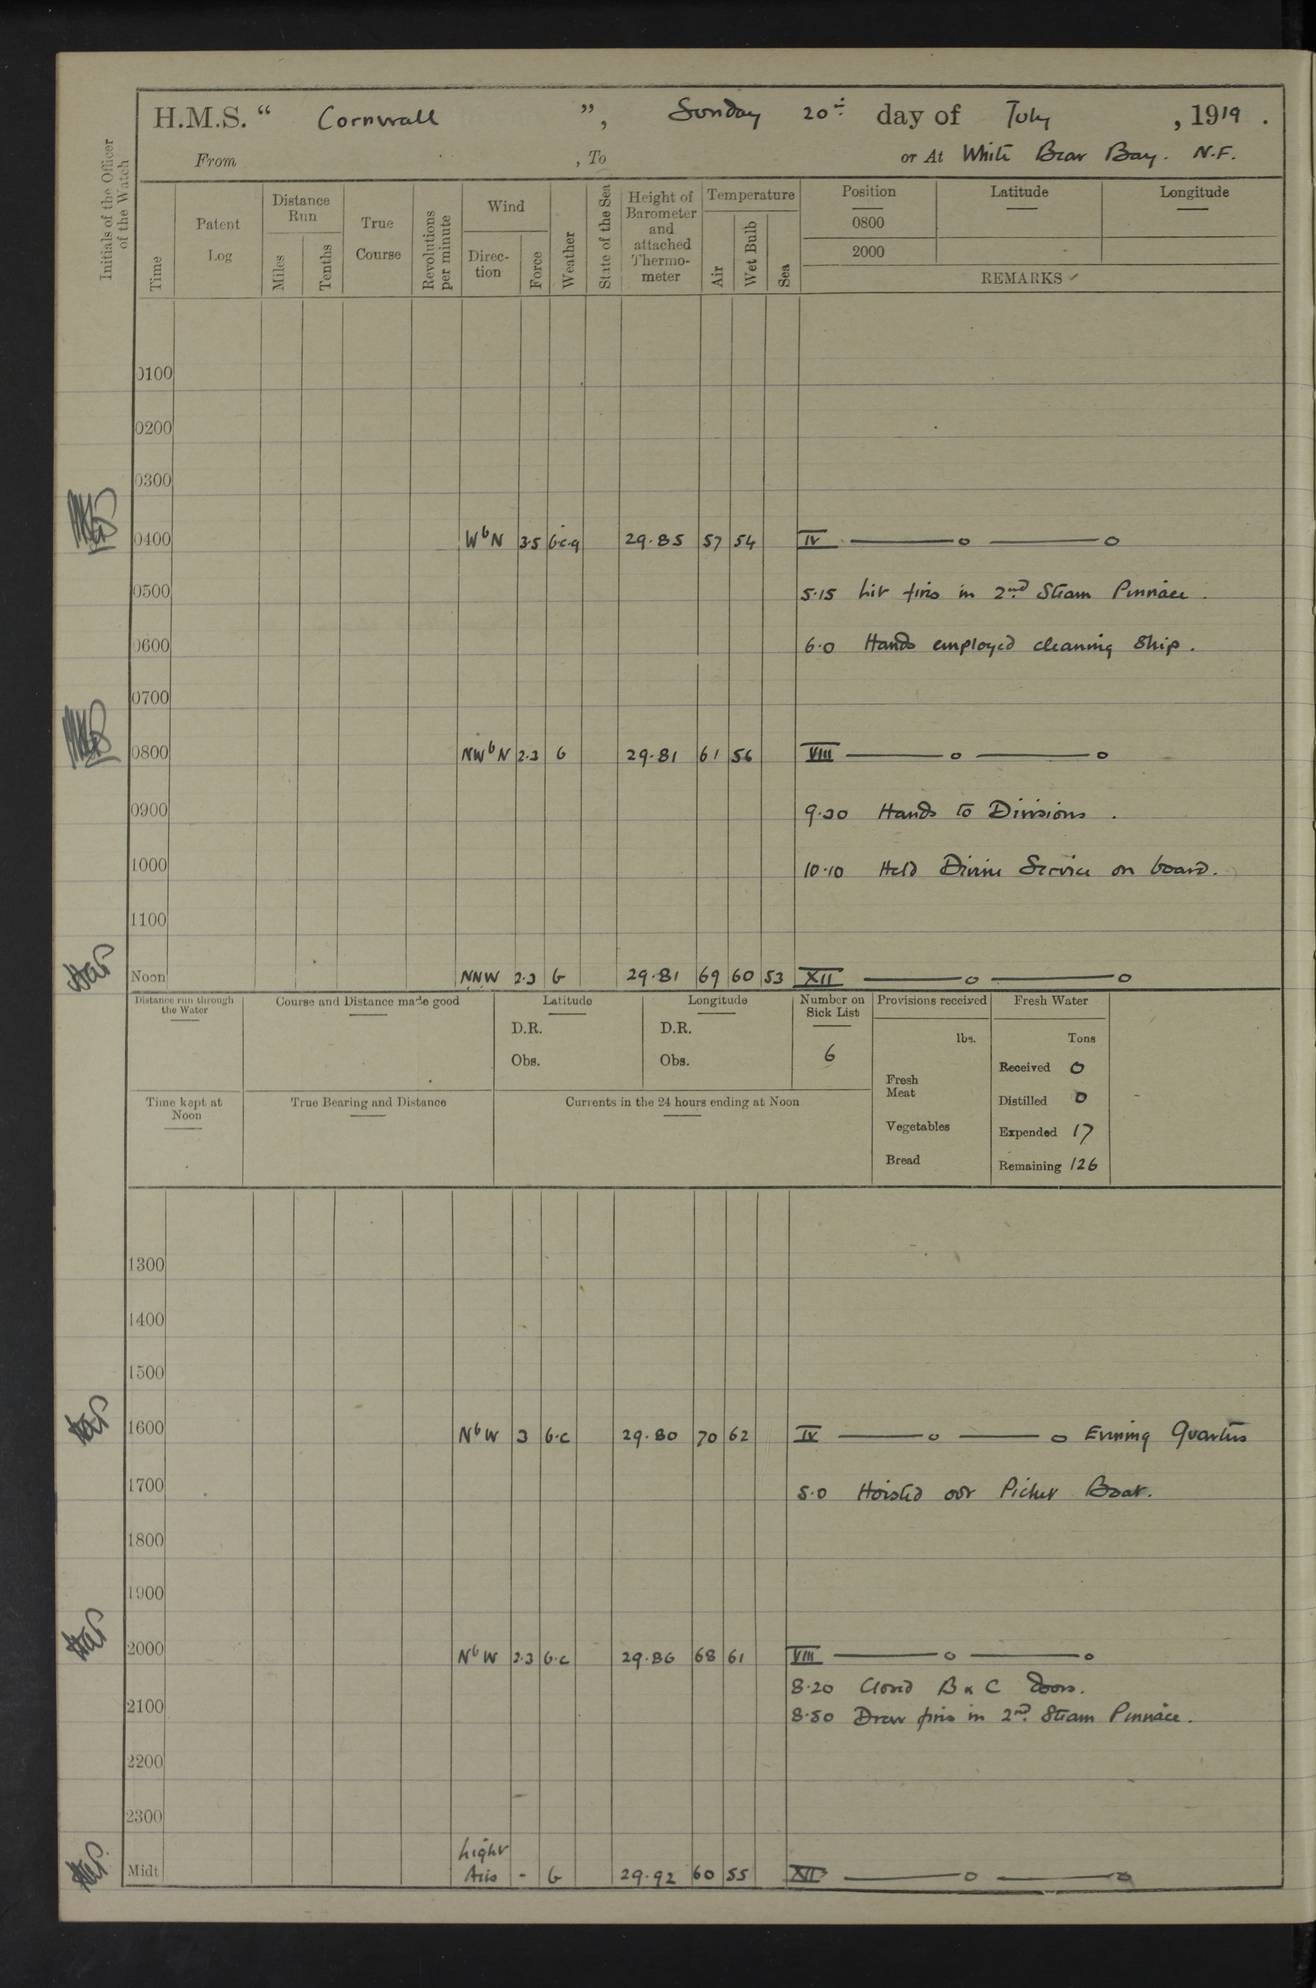 H.M.S. “ Cornwall ”, Sunday 20th day of July , 1919 .
From , To or At White Bear Bay. N.F.
Initials of the Officer of the Watch
Time
Patent Log
Distance Run
Miles
Tenths
True Course
Revolutions per minute
Wind
Direc-tion
Force
Weather
State of the Sea
Height of Barometer and attached Thermo-meter
Temperature
Air
Wet Bulb
Sea
Position Latitude Longitude
0800
2000
REMARKS ✓
0100
0200
0300
0400 WbN 3.5 b.c.q 29.85 57 54 IV
0500 5.15 Lit fires in 2nd Steam Pinnace.
0600 6.0 Hands employed cleaning Ship.
0700
0800 NWbN 2.3 b 29.81 61 56 VIII
0900 9.30 Hands to Divisions.
1000 10.10 Held Divine Service on board.
1100
Noon NNW 2.3 b 29.81 69 60 53 XII
Distance run through the Water
Course and Distance made good
Latitude
D.R.
Obs.
Longitude
D.R.
Obs.
Number on Sick List
6
Provisions received
lbs.
Fresh Meat
Vegetables
Bread
Fresh Water
Tons
Received 0
Distilled 0
Expended 17
Remaining 126
Time kept at Noon
True Bearing and Distance
Currents in the 24 hours ending at Noon
1300
1400
1500
1600 NbW 3 b.c 29.80 70 62 IV Evening Quarters
1700 5.0 Hoisted out Picket Boat.
1800
1900
2000 NbW 2.3 b.c 29.86 68 61 VIII
8.20 Closed B & C doors.
2100 8.50 Drew fires in 2nd Steam Pinnace.
2200
2300
Midt Light Airs - b 29.92 60 55 XII